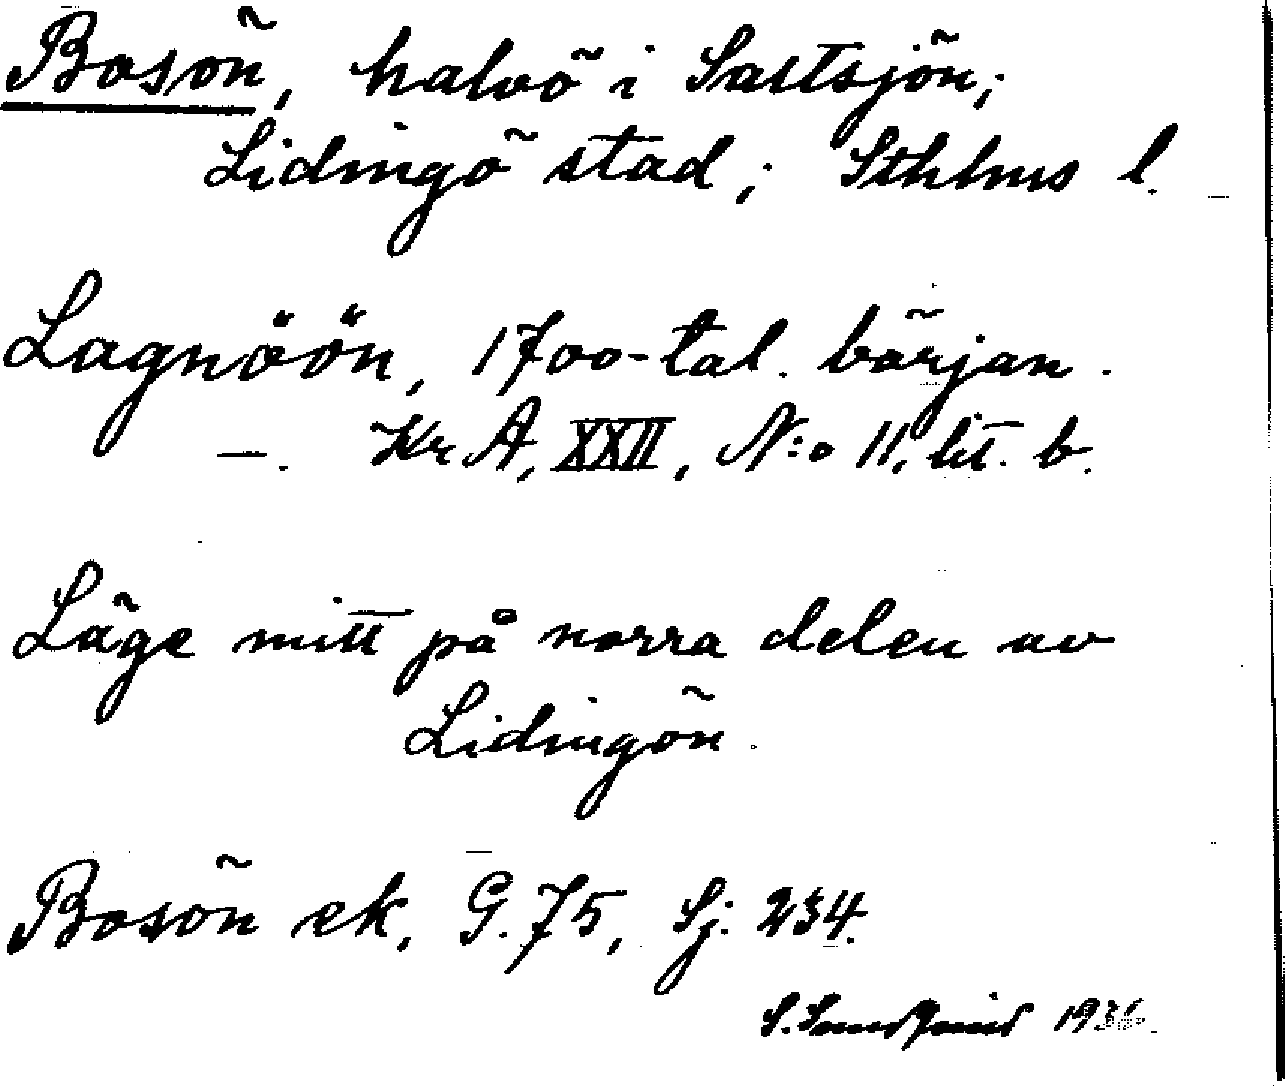 Bosön, halvö i Saltsjön;
Lidingö stad; Sthlms l.
Lagnöön, 1700-tal. början.
—. Kr A, XXII, N:o 11, lit. b.
Läge mitt på norra delen av
Lidingön.
Bosön ek, G. 75, Sj. 234.
S. 193